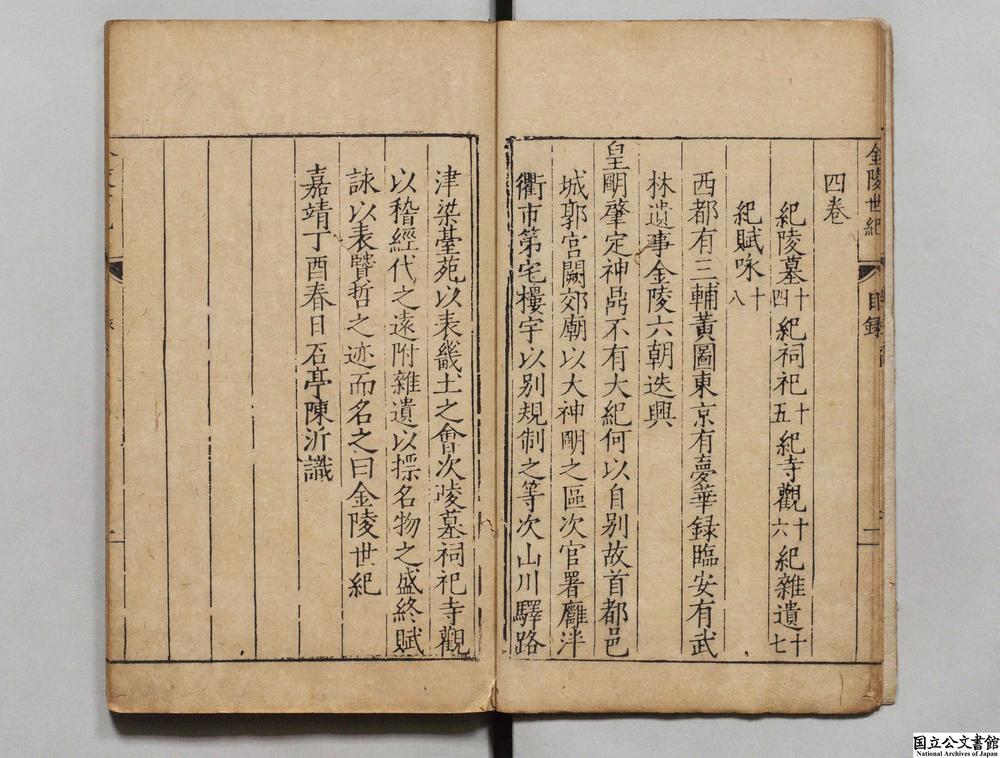 金陵世紀
目録
四卷
紀陵墓十四 紀祠祀十五 紀寺觀十六 紀雜遺十七
紀賦咏十八
西都有三輔黃圖東京有夢華録臨安有武
林遺事金陵六朝迭興
皇明肇定神鼎不有大紀何以自别故首都邑
城郭宫闕郊廟以大神明之區次官署廱泮
衢市第宅樓宇以别規制之等次山川驛路
津梁臺苑以表畿土之會次陵墓祠祀寺觀
以稽經代之遠附雜遺以摽名物之盛終賦
詠以表賢哲之迹而名之曰金陵世紀
嘉靖丁酉春日石亭陳沂識
国立公文書館
National Archives of Japan